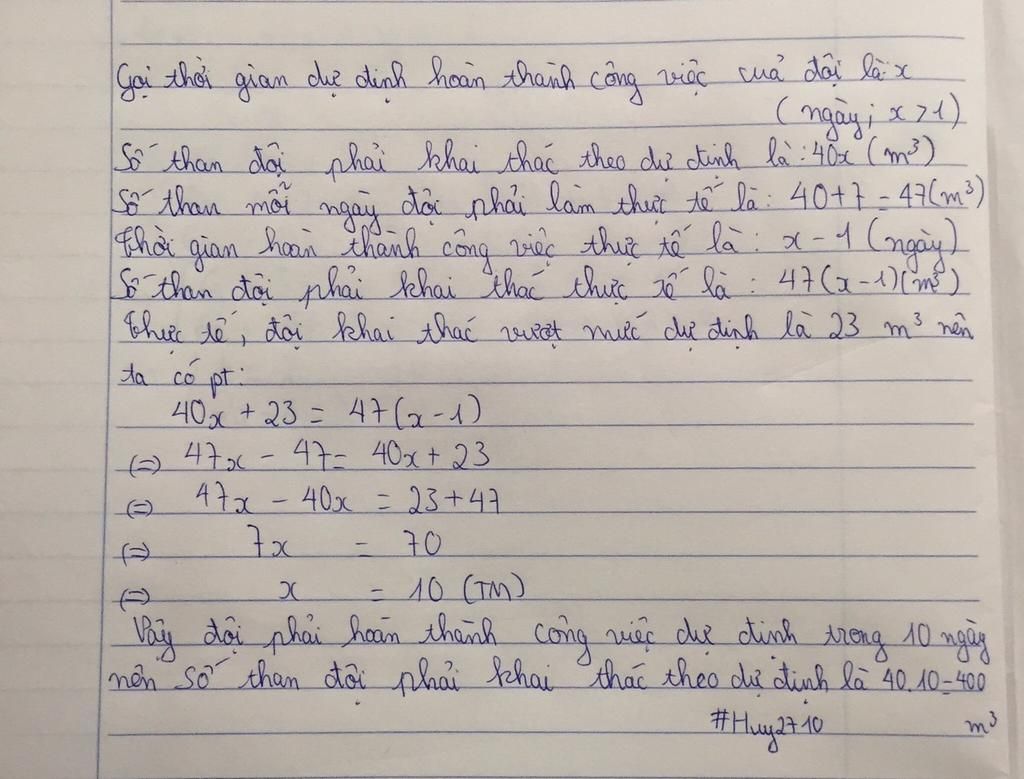 Gọi thời gian dự định hoàn thành công việc cuả đội là x
(ngày; x > 1)
Số than đội phải khai thác theo dự định là: 40x (m³)
Số than mỗi ngày đội phải làm thực tế là: 40+7 = 47(m³)
Thời gian hoàn thành công việc thực tế là: x - 1 (ngày)
Số than đội phải khai thác thực tế là: 47(x-1)(m³)
Thực tế, đội khai thác vượt mức dự định là 23 m³ nên
ta có pt:
40x + 23 = 47(x-1)
(=) 47x - 47 = 40x + 23
(=) 47x - 40x = 23 + 47
(=) 7x = 70
(=) x = 10 (TM)
Vậy đội phải hoàn thành công việc dự định trong 10 ngày
nên số than đội phải khai thác theo dự định là 40.10=400
m³
#Huy2710